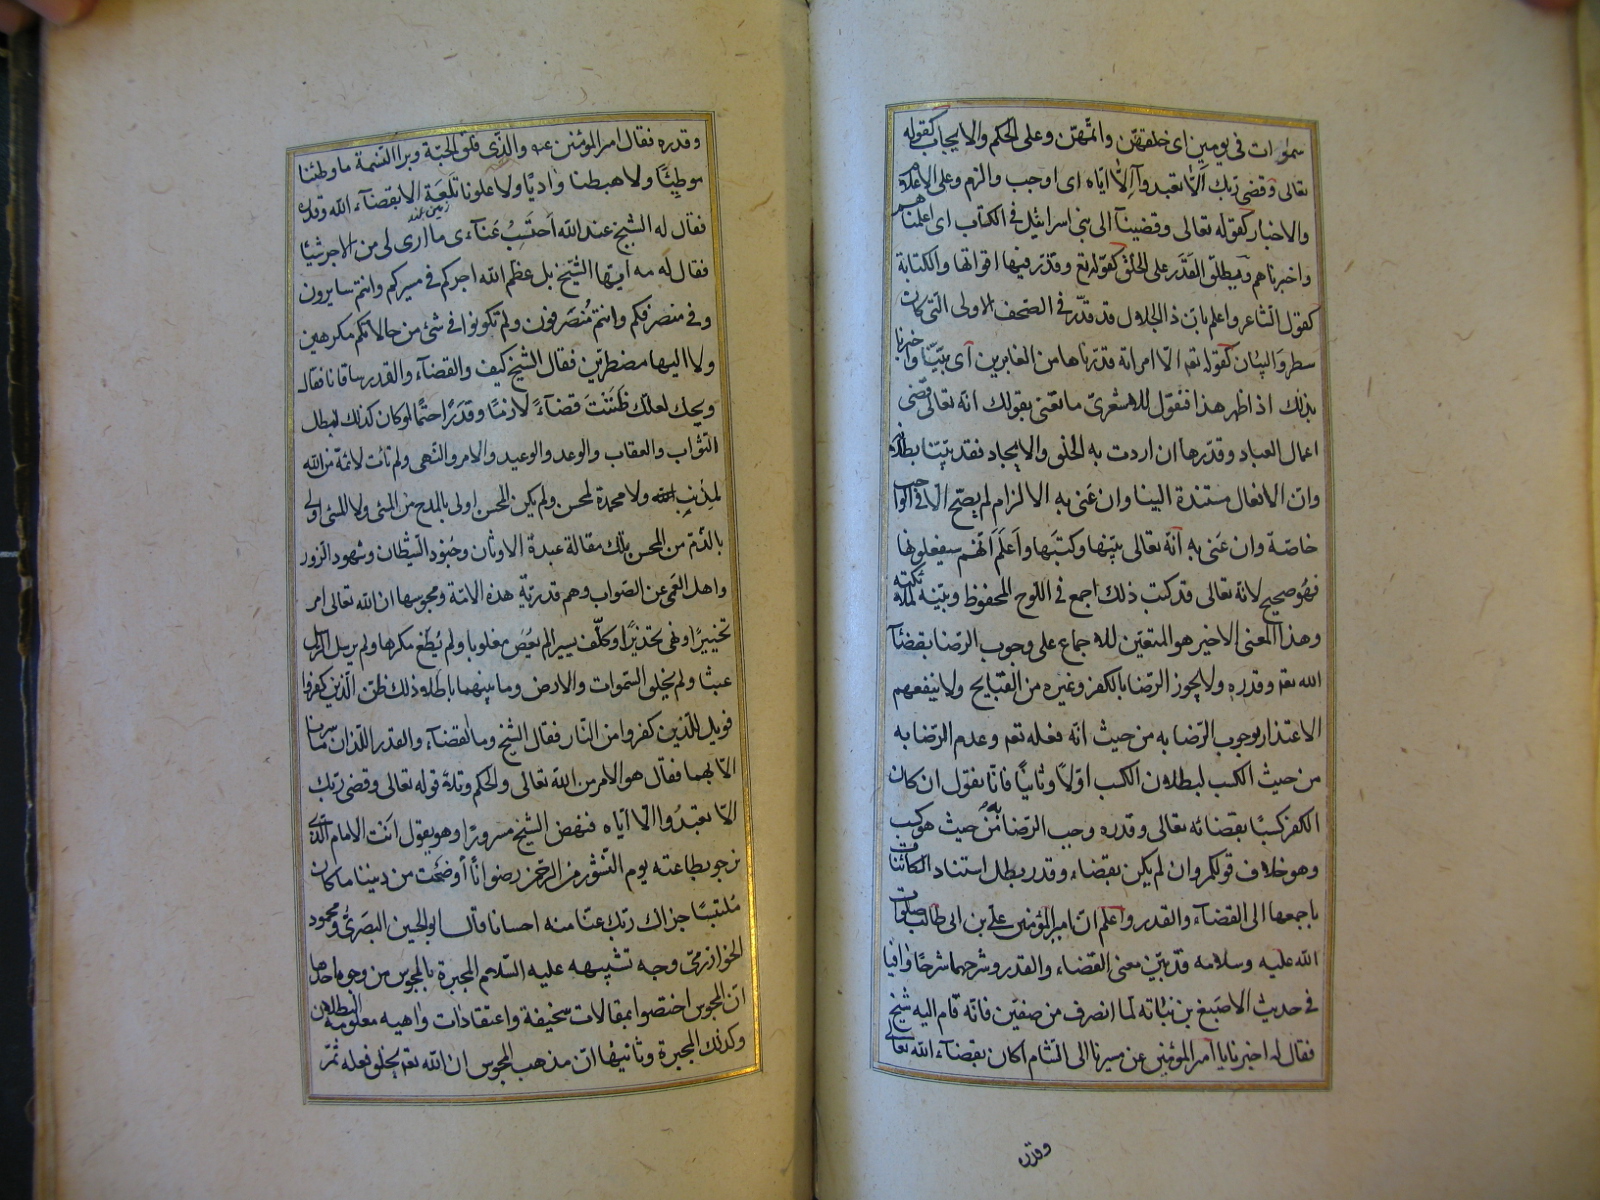 سموات في يومين اى خلقهنّ واتمّهنّ وعلى الحكم والايجاب كقوله
تعالى وقضى ربّك ألّا تعبدوآ إلّا ايّاه اى اوجب والزم وعلى الاعلام
والاخبار كقوله تعالى وقضينآ الى بنى اسرائيل في الكتاب اى اعلمناهم
واخبرناهم ويطلق القدر على الخلق كقوله تع وقدّر فيها اقواتها والكتابة
كقول الشاعر واعلم بانّ ذا الجلال قد قدّر في الصّحف الاولى الّتى كان
سطر والبيان كقوله تعم الّا امراته قدّرناها من الغابرين اى بيّنّا واخبرنا
بذلك اذ اظهر هذا فنقول للاشعرىّ ما تعنى بقولك انّه تعالى قضى
اعمال العباد وقدّرها ان اردت به الخلق والايجاد فقد بيّنّا بطلانه
وانّ الافعال مستندة الينا وان عنى به الالزام لم يصحّ الّا في الواجب
خاصّة وان عنى به انّه تعالى بيّنها وكتبها واعلم انّهم سيفعلونها
فهو صحيح لانّه تعالى قد كتب ذلك اجمع في اللّوح المحفوظ وبيّنه لملائكته
وهذا المعنى الاخير هو المتعيّن للاجماع على وجوب الرّضا بقضآء
الله تعم وقدره ولا يجوز الرّضا بالكفر وغيره من القبايح ولا ينفعهم
الاعتذار بوجوب الرّضا به من حيث انّه فعله تعم وعدم الرّضا به
من حيث الكسب لبطلان الكسب اوّلاً وثانياً فانّا نقول ان كان
الكفر كسبًا بقضائه تعالى وقدره وجب الرّضا به من حيث هو كسب
وهو خلاف قولكم وان لم يكن بقضاء وقدر بطل استناد الكائنات
باجمعها الى القضآء والقدر واعلم انّ امير المؤمنين علي بن ابى طالب صلوات
الله عليه وسلامه قد بيّن معنى القضاء والقدر وشرحهما شرحًا وافيا
في حديث الاصبغ بن نباته لمّا انصرف من صفّين فانّه قام اليه شيخ
فقال له اخبرنا يا امير المؤمنين عن مسيرنا الى الشّام اكان بقضآء الله تعالى
وقدره
وقدره فقال امير المؤمنين عم والّذى فلق الحبّة وبرا النسمة ما وطئنا
موطِئًا ولا هبطنا واديًا ولا علونا تلعة الا بقضآء الله وقدره
زمين بلند
فقال له الشّيخ عند الله احتسب عنآءى ما ارى لى من الاجر شيئا
فقال له مه ايّها الشّيخ بل عظم الله اجركم في مسيركم وانتم سايرون
وفي منصرفكم وانتم منصرفون ولم تكونوا في شئ من حالاتكم مكرهين
ولا اليها مضطرّين فقال الشّيخ كيف والقضآء والقدر ساقانا فقال
ويحك لعلّك ظننت قضآءً لازمًا وقدرًا حتمًا لو كان كذلك لبطل
الثّواب والعقاب والوعد والوعيد والامر والنّهى ولم تأت لائمة من الله
لمذنب ولا محمدة لمحسن ولم يكن المحسن اولى بالمدح من المسئ ولا المسئ اولى
بالذّمّ من المحسن تلك مقالة عبدة الاوثان وجنود الشّيطان وشهود الزّور
واهل العمى عن الصّواب وهم قدريّة هذه الامّة ومجوسها ان الله تعالى امر
تخييرًا ونهى تحذيرًا وكلّف يسيرا لم يعص مغلوبا ولم يُطع مكرها ولم يرسل الرسل
عبثا ولم يخلق السّموات والارض وما بينهما باطلا ذلك ظنّ الّذين كفروا
فويل للّذين كفروا من النّار فقال الشّيخ وما القضآء والقدر اللّذان ما سرنا
الّا بهما فقال هو الامر من الله تعالى والحكم وتلا قوله تعالى وقضى ربّك
الّا تعبدُوا الّا ايّاه فنهض الشّيخ مسرورًا وهو يقول انت الامام الّذى
نرجو بطاعته يوم النّشور من الرّحمن رضوانًا أوضحت من ديننا ما كان
ملتبسًا جزاك ربّك عنّا منه احسانا قال ابو الحسين البصرىّ ومحمود
الخوارزمىّ وجه تشبيهه عليه السّلام المجبرة بالمجوس من وجوه احدها
انّ المجوس اختصّوا بمقالات سخيفة واعتقادات واهيه معلومة البطلان
وكذلك المجبرة وثانيها انّ مذهب المجوس ان الله تعم يخلق فعله ثمّ